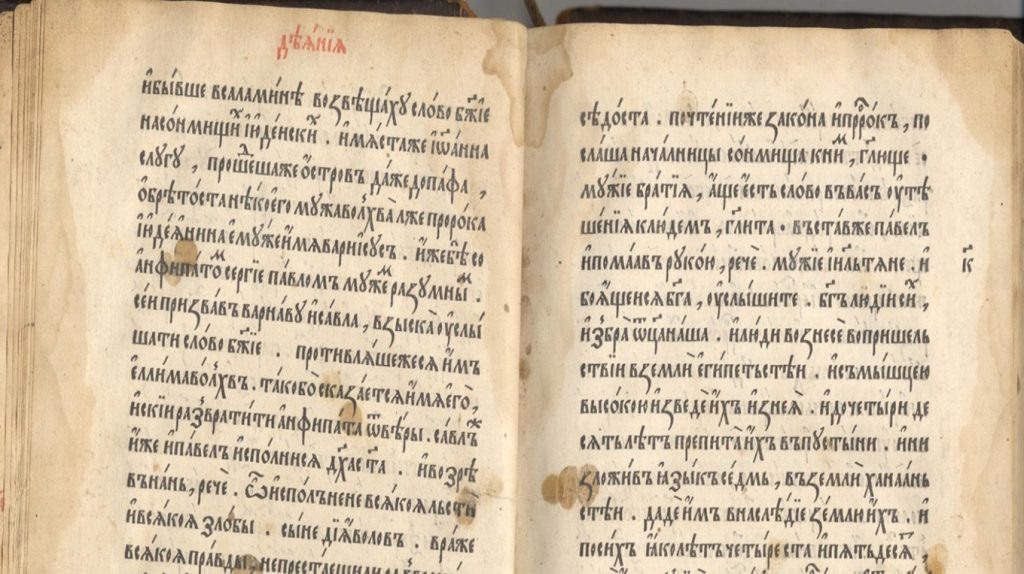 дѣѧ́нїѧ
и҆бы́вше всалами́нѣ возвѣща́ху сло́во бж҃їе
насо́нмищихъ і҆ꙋде́искихъ . и҆мѧ́стаже і҆ѡа́нна
слугу̀ , проше́дшаже ѻ҆́стровъ да́же допа́фа ,
ѡ҆брѣто́ста нѣ́коего мꙋ́жа волхва̀ лже проро́ка
і҆ꙋде́ѧнина є҆мꙋ́же и҆́мѧ варїисꙋсъ . и҆́же бѣ̀ со
а҆нѳипа́томъ се́ргїе па́вломъ мꙋ́жемъ разꙋ́мнымъ .
се́и призва́въ варна́вꙋ и҆са́вла , взыска̀ ᲂу҆слы́
шати сло́во бж҃їе . противлѧ́шежесѧ и҆́мъ
є҆ллима́ волхвъ . та́кобо̀ сказа́етсѧ и҆́мѧ є҆го̀ ,
и҆скі́и развратити а҆нѳипа́та ѿвѣ́ры . са́влъжъ
и҆́же и҆ па́велъ и҆спо́лнисѧ дх҃а ст҃а . и҆возрѣ́
въна́нь , речѐ . ѽ и҆спо́лънене всѧ́коѧ льстѝ
и҆всѧ́коѧ зло́бы . сы́не дїѧ́воловъ . вра́же
всѧ́коѧ пра́вды , непреста́еши ли
сѣдо́ста . почте́нїиже зако́на и҆прⷪ҇ро́къ , по
сла́ша нача́лницы со́нмища книмъ , гл҃юще .
мꙋ́жїе бра́тїѧ , а҆́ще є҆́сть сло́во въва́съ ᲂу҆тѣ
ше́нїѧ клю́демъ , гл҃ита . въста́вже па́велъ
и҆помаа́въ рꙋко́ю , речѐ . мꙋ́жїе і҆и҃льтѧне . и҆
к҃
боѧ́щеисѧ бг҃а , ᲂу҆слы́шите . бг҃ъ лю́дїи си́хъ ,
и҆збра̀ ѻ҆тц҃а на́ша . и҆ лю́ди вознесѐ вопришель
ствїи вземлѝ є҆гі́петьстѣи . и҆съмы́шцею
высо́кою и҆зведѐ и҆́хъ и҆знеѧ̀ . и҆до четы́ри де
сѧ́ть лѣ́тъ препита̀ и҆́хъ въпꙋсты́ни . и҆ни
зложи́въ ꙗ҆зы́къ се́дмь , въземлѝ ханаа́нь
стѣ́и . дадѐ и҆́мъ внаслѣ́дїе зе́млю и҆́хъ . и҆
поси́хъ ꙗ҆́ко лѣ́тъ четы́ре ста и҆пѧтьдесѧ́тъ ,